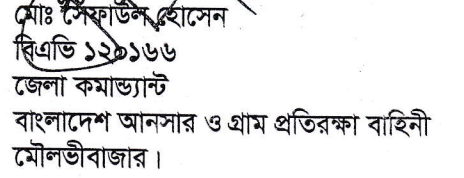 মোঃ সেফাউল হোসেন
বিএভি ১২০১৬৬
জেলা কমান্ড্যান্ট
বাংলাদেশ আনসার ও গ্রাম প্রতিরক্ষা বাহিনী
মৌলভীবাজার।